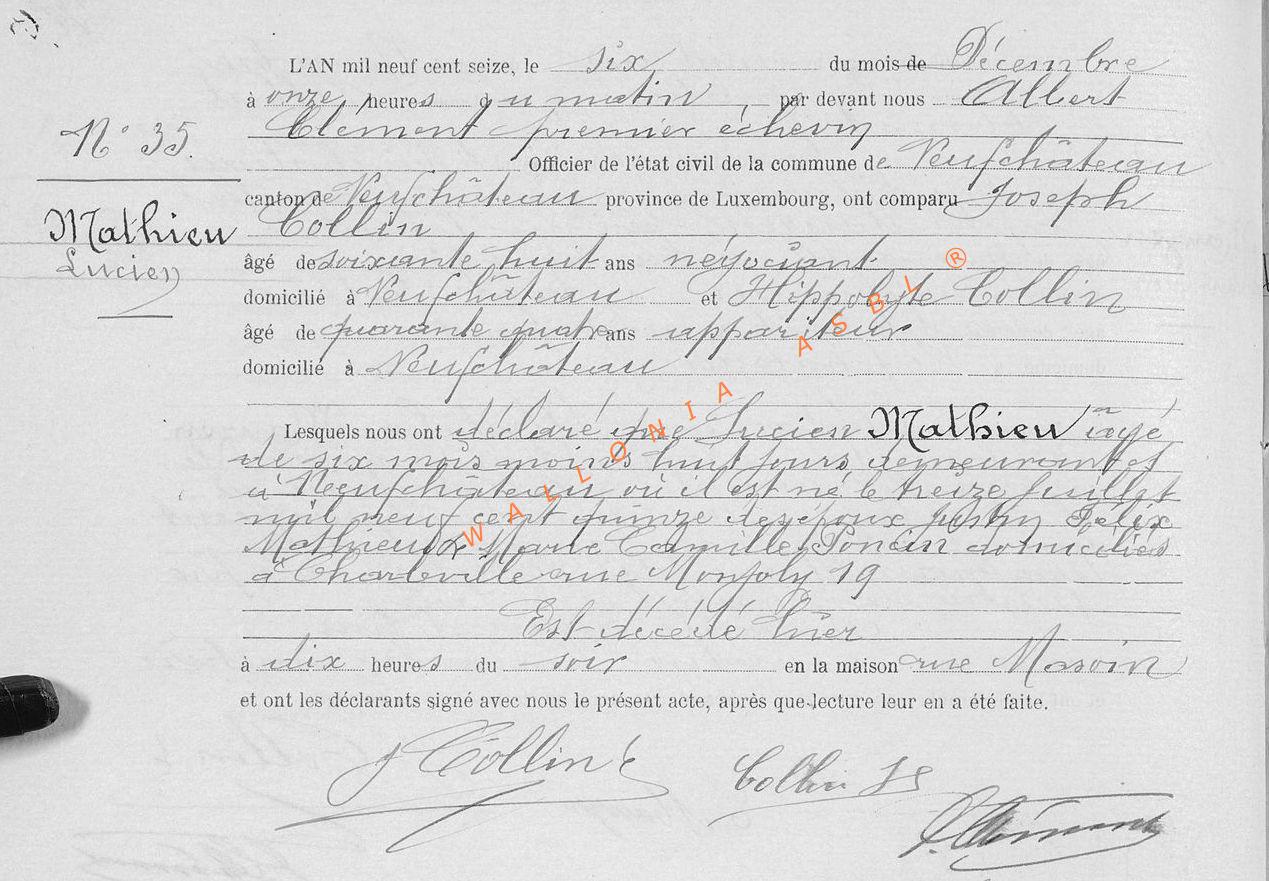 L'AN mil neuf cent seize, le six du mois de Décembre
à onze heures du matin, par devant nous Albert
Clément premier échevin
N° 35.
Officier de l'état civil de la commune de Neufchâteau
canton de Neufchâteau province de Luxembourg, ont comparu Joseph
Collin
Mathieu
Lucien
âgé de soixante huit ans négociant
domicilié à Neufchâteau et Hippolyte Collin
âgé de quarante quatre ans appariteur
domicilié à Neufchâteau
Lesquels nous ont déclaré que Lucien Mathieu âgé
de six mois moins huit jours demeurant
à Neufchâteau où il est né le treize juillet
mil neuf cent quinze des époux Félix
Mathieu & Marie Camille Poncin domiciliés
à Charleville rue Monjoly 19
Est décédé hier
à dix heures du soir en la maison rue Masoin
et ont les déclarants signé avec nous le présent acte, après que lecture leur en a été faite.
J Collin
Collin
Clément
WALLONIA ASBL ®